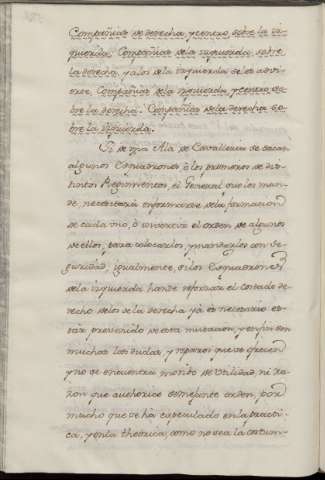 Compañias de derecha y centro, sobre la iz-
quierda. Compañias de la izquierda, sobre
la derecha, y a los de la izquierda se les advi-
erte, Compañias de la izquierda y centro so-
bre la derecha. Compañias de la derecha so-
bre la izquierda.
Si de una Ala de Cavalleria se sacan
algunos Esquadrones, ò los primeros de dis-
tintos Regimientos, el General que los man-
de, necesitará informarse de la formacion
de cada uno, ò invertir el orden de algunos
de ellos, para colocarlos, y mandarlos con se-
guridad, igualmente, si los Esquadrones
de la izquierda han de reforzar el costado de-
recho, de los de la derecha ya es necesario es-
tar prevenido de esta mutacion, y en fin son
muchas las dudas, y reparos que se ofrecen
y no se encuentra motivo de utilidad, ni ra-
zon que authorice semejante orden, por
mucho que se ha especulado en la practi-
ca, y en la theorica, como no sea la costum-